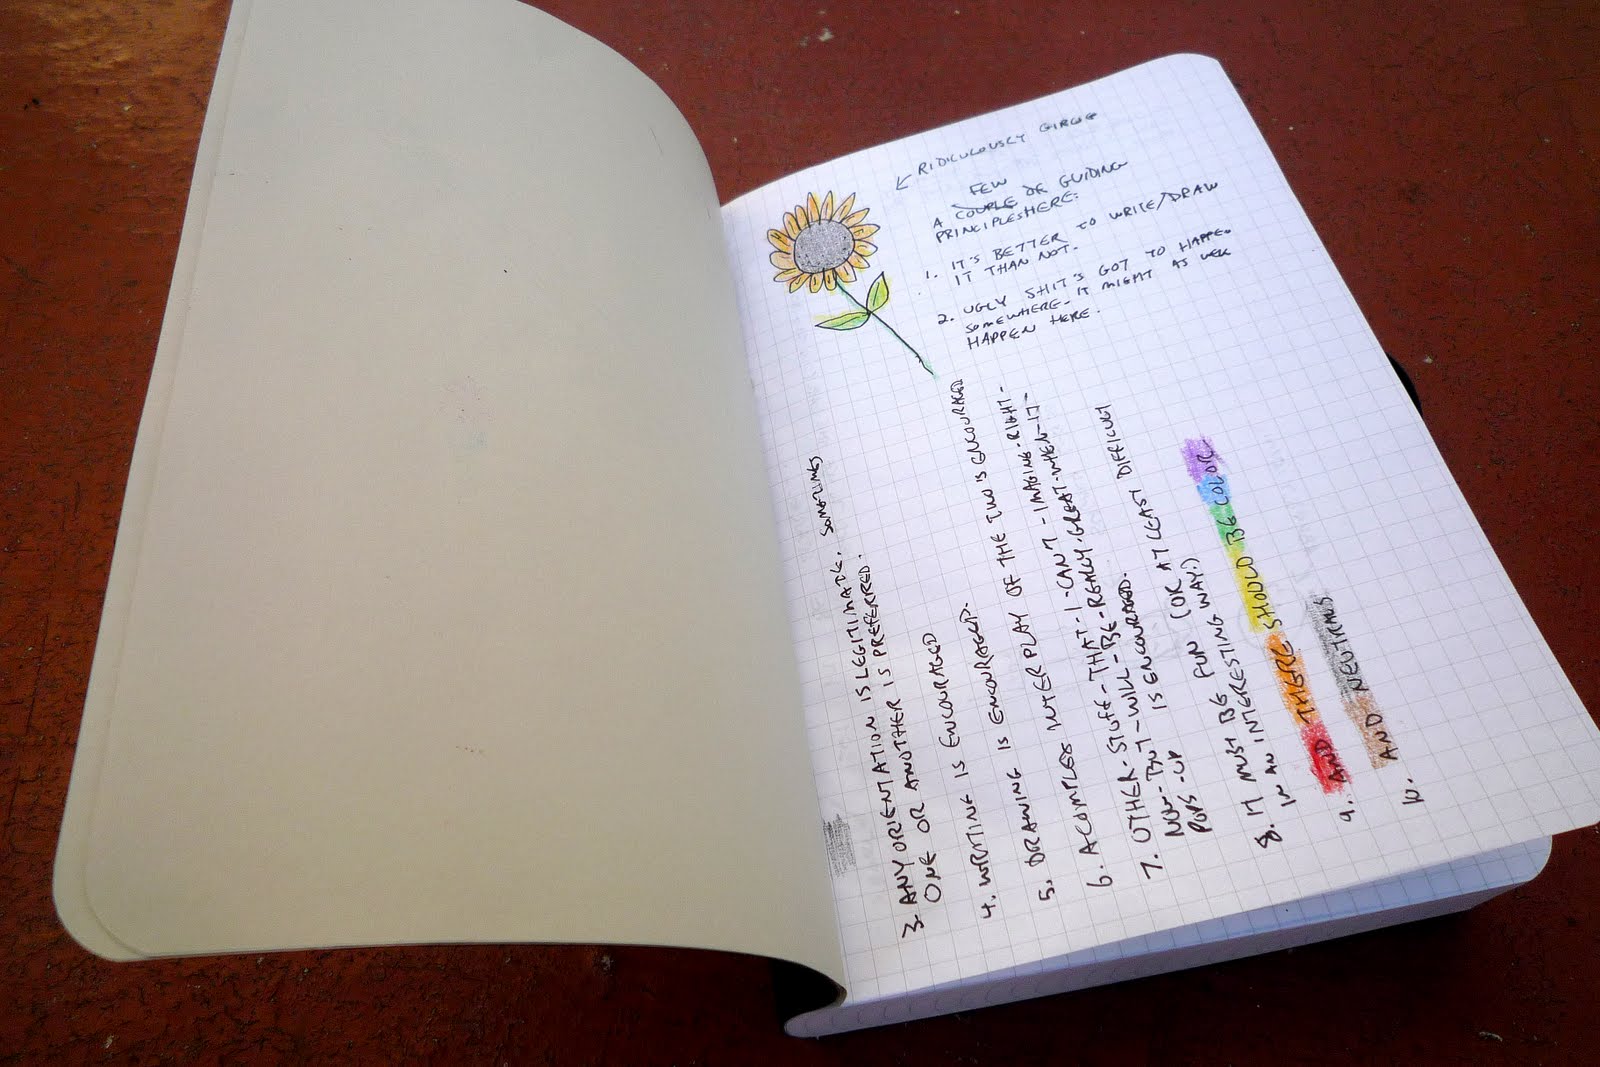 ← RIDICULOUSLY
FEW
A COUPLE OF GUIDING
PRINCIPLES HERE:
1. IT'S BETTER TO WRITE/DRAW
IT THAN NOT.
2. UGLY SHIT'S GOT TO HAPPEN
SOMEWHERE. IT MIGHT AS WELL
HAPPEN HERE.
3. ANY ORIENTATION IS LEGITIMATE. SOMETIMES
ONE OR ANOTHER IS PREFERRED.
ONE IS ENCOURAGED
4. WRITING IS ENCOURAGED.
5. DRAWING IS ENCOURAGED.
6. A COMPLEX INTERPLAY OF THE TWO IS ENCOURAGED
7. OTHER-STUFF-THAT-I-CAN'T-IMAGING-RIGHT-
NOW-BUT-WILL-BE-REALLY-GREAT-WHEN-IT-
POPS-UP IS ENCOURAGED.
8. IT MUST BE FUN (OR AT LEAST DIFFICULT
IN AN INTERESTING WAY.)
9. AND THERE SHOULD BE COLOR
AND NEUTRALS
10.